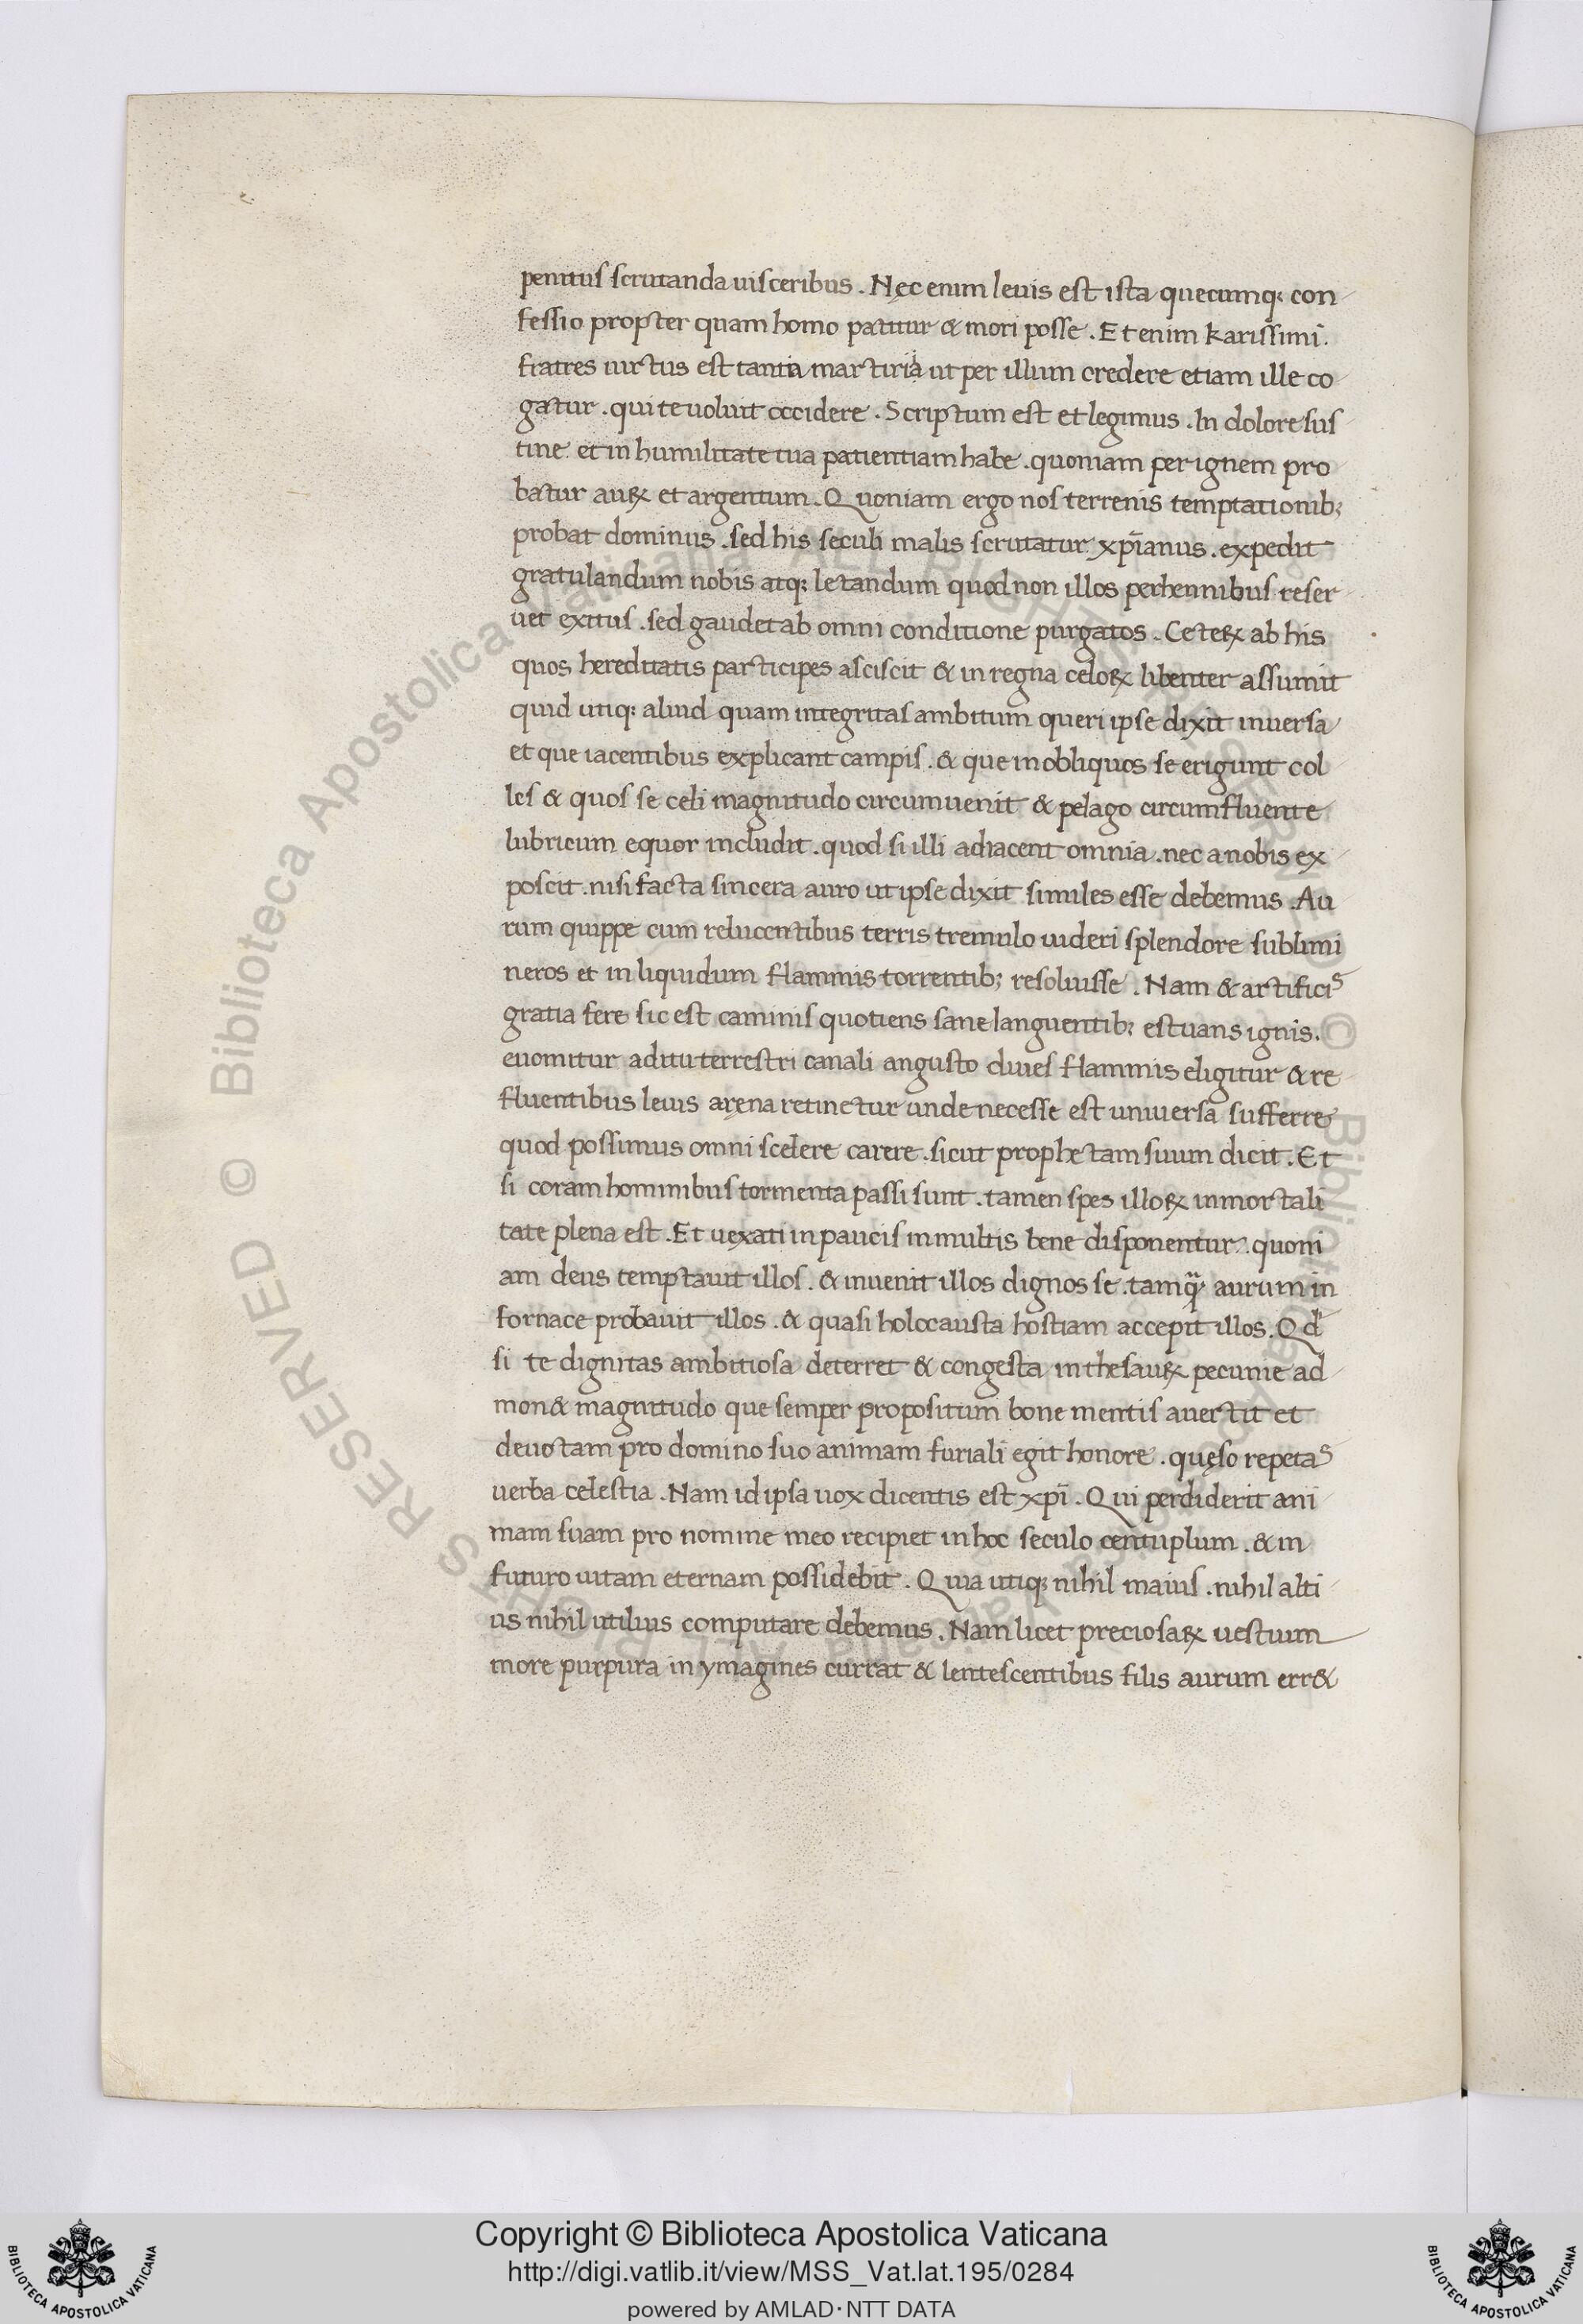 penitus scrutanda uisceribus . Nęc enim leuis est ista quecumq; con
fessio propter quam homo patitur & mori posse . Et enim karissimi .
fratres uirtus est tanta martiria ut per illum credere etiam ille co
gatur . qui te uoluit occidere . Scriptum est et legimus . In dolore sus
tine et in humilitate tua patientiam habe . quoniam per ignem pro
batur auꝝ et argentum . Quoniam ergo nos terrenis temptationib;
probat dominus . sed his seculi malis scrutatur xp̄ianus . expedit
gratulandum nobis atq; letandum quod non illos perhennibus reser
uet exitus . sed gaudet ab omni conditione purgatos . Ceteꝝ ab his
quos hereditatis participes asciscit & in regna celoꝝ libenter assumit
quid utiq; aliud quam integritas ambitum queri ipse dixit inuersa
et que iacentibus explicant campis . & que in obliquos se erigunt col
les & quos se celi magnitudo circumuenit & pelago circumfluente
lubricum equor includit . quod si illi adiacent omnia . nec a nobis ex
poscit . nisi facta sincera auro ut ipse dixit similes esse debemus . Au
rum quippe cum relucentibus terris tremulo uideri splendore sublimi
neros et in liquidum flammis torrentib; resoluisse . Nam & artificis
gratia fere sic est caminis quotiens sane languentib; estuans ignis .
euomitur aditu terrestri canali angusto diues flammis eligitur & re
fluentibus leuis arena retinetur unde necesse est uniuersa sufferre
quod possimus omni scelere carere . sicut prophetam suum dicit . Et
si coram hominibus tormenta passi sunt . tamen spes illoꝝ inmortali
tate plena est . Et uexati in paucis in multis bene disponentur . quoni
am deus temptauit illos . & inuenit illos dignos se . tamq̄ aurum in
fornace probauit illos . & quasi holocausta hostiam accepit illos . Qd
si te dignitas ambitiosa deterret & congesta in thesauꝝ pecunie ad
mon& magnitudo que semper propositum bone mentis auertit et
deuotam pro domino suo animam furiali egit honore . quęso repetas
uerba celestia . Nam id ipsa uox dicentis est xpī . Qui perdiderit ani
mam suam pro nomine meo recipiet in hoc seculo centuplum . & in
futuro uitam eternam possidebit . Quia utiq; nihil maius . nihil alti
us nihil utilius computare debemus . Nam licet preciosaꝝ uestium
more purpura in ymagines currat & lentescentibus filis aurum err&
Copyright © Biblioteca Apostolica Vaticana
http://digi.vatlib.it/view/MSS_Vat.lat.195/0284
powered by AMLAD·NTT DATA